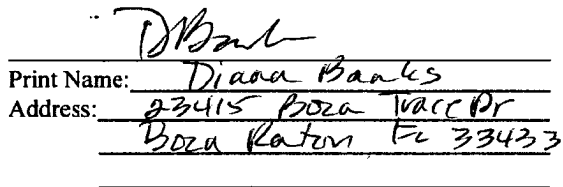 DBank
Print Name: Diana Banks
Address: 23415 Boca Trace Dr
Boca Raton, FL 33433